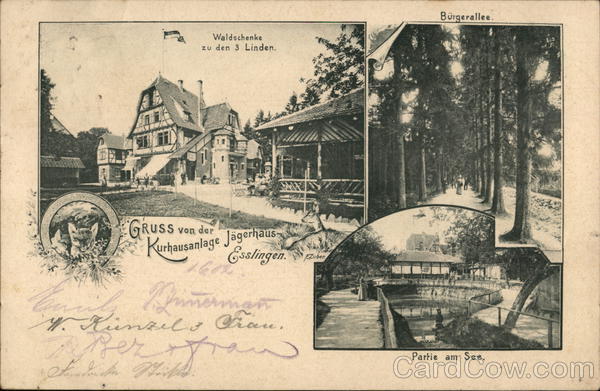 Waldschenke
zu den 3 Linden.
Bürgerallee.
GRUSS von der
Kurhausanlage Jägerhaus-
Esslingen.
Partie am See.
1602
Emil
W. Künzel & Frau.
CardCow.com